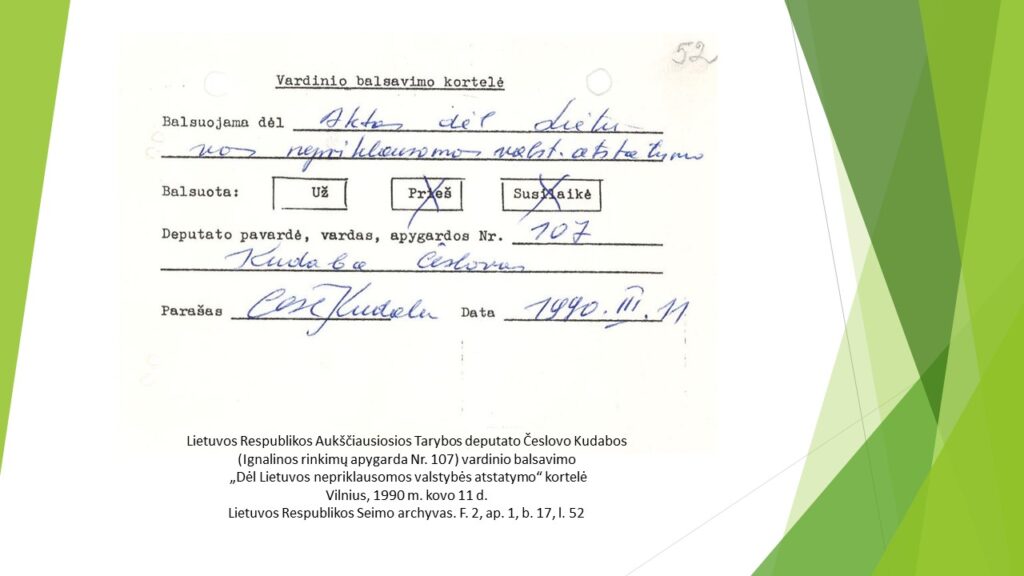 52
Vardinio balsavimo kortelė
Balsuojama dėl Aktas dėl Lietu-
vos nepriklausomos valst. atstatymo
Balsuota: Už Prieš Susilaikė
Deputato pavardė, vardas, apygardos Nr. 107
Kudaba Česlovas
Parašas Česl Kudaba Data 1990. III. 11
Lietuvos Respublikos Aukščiausiosios Tarybos deputato Česlovo Kudabos
(Ignalinos rinkimų apygarda Nr. 107) vardinio balsavimo
„Dėl Lietuvos nepriklausomos valstybės atstatymo“ kortelė
Vilnius, 1990 m. kovo 11 d.
Lietuvos Respublikos Seimo archyvas. F. 2, ap. 1, b. 17, l. 52